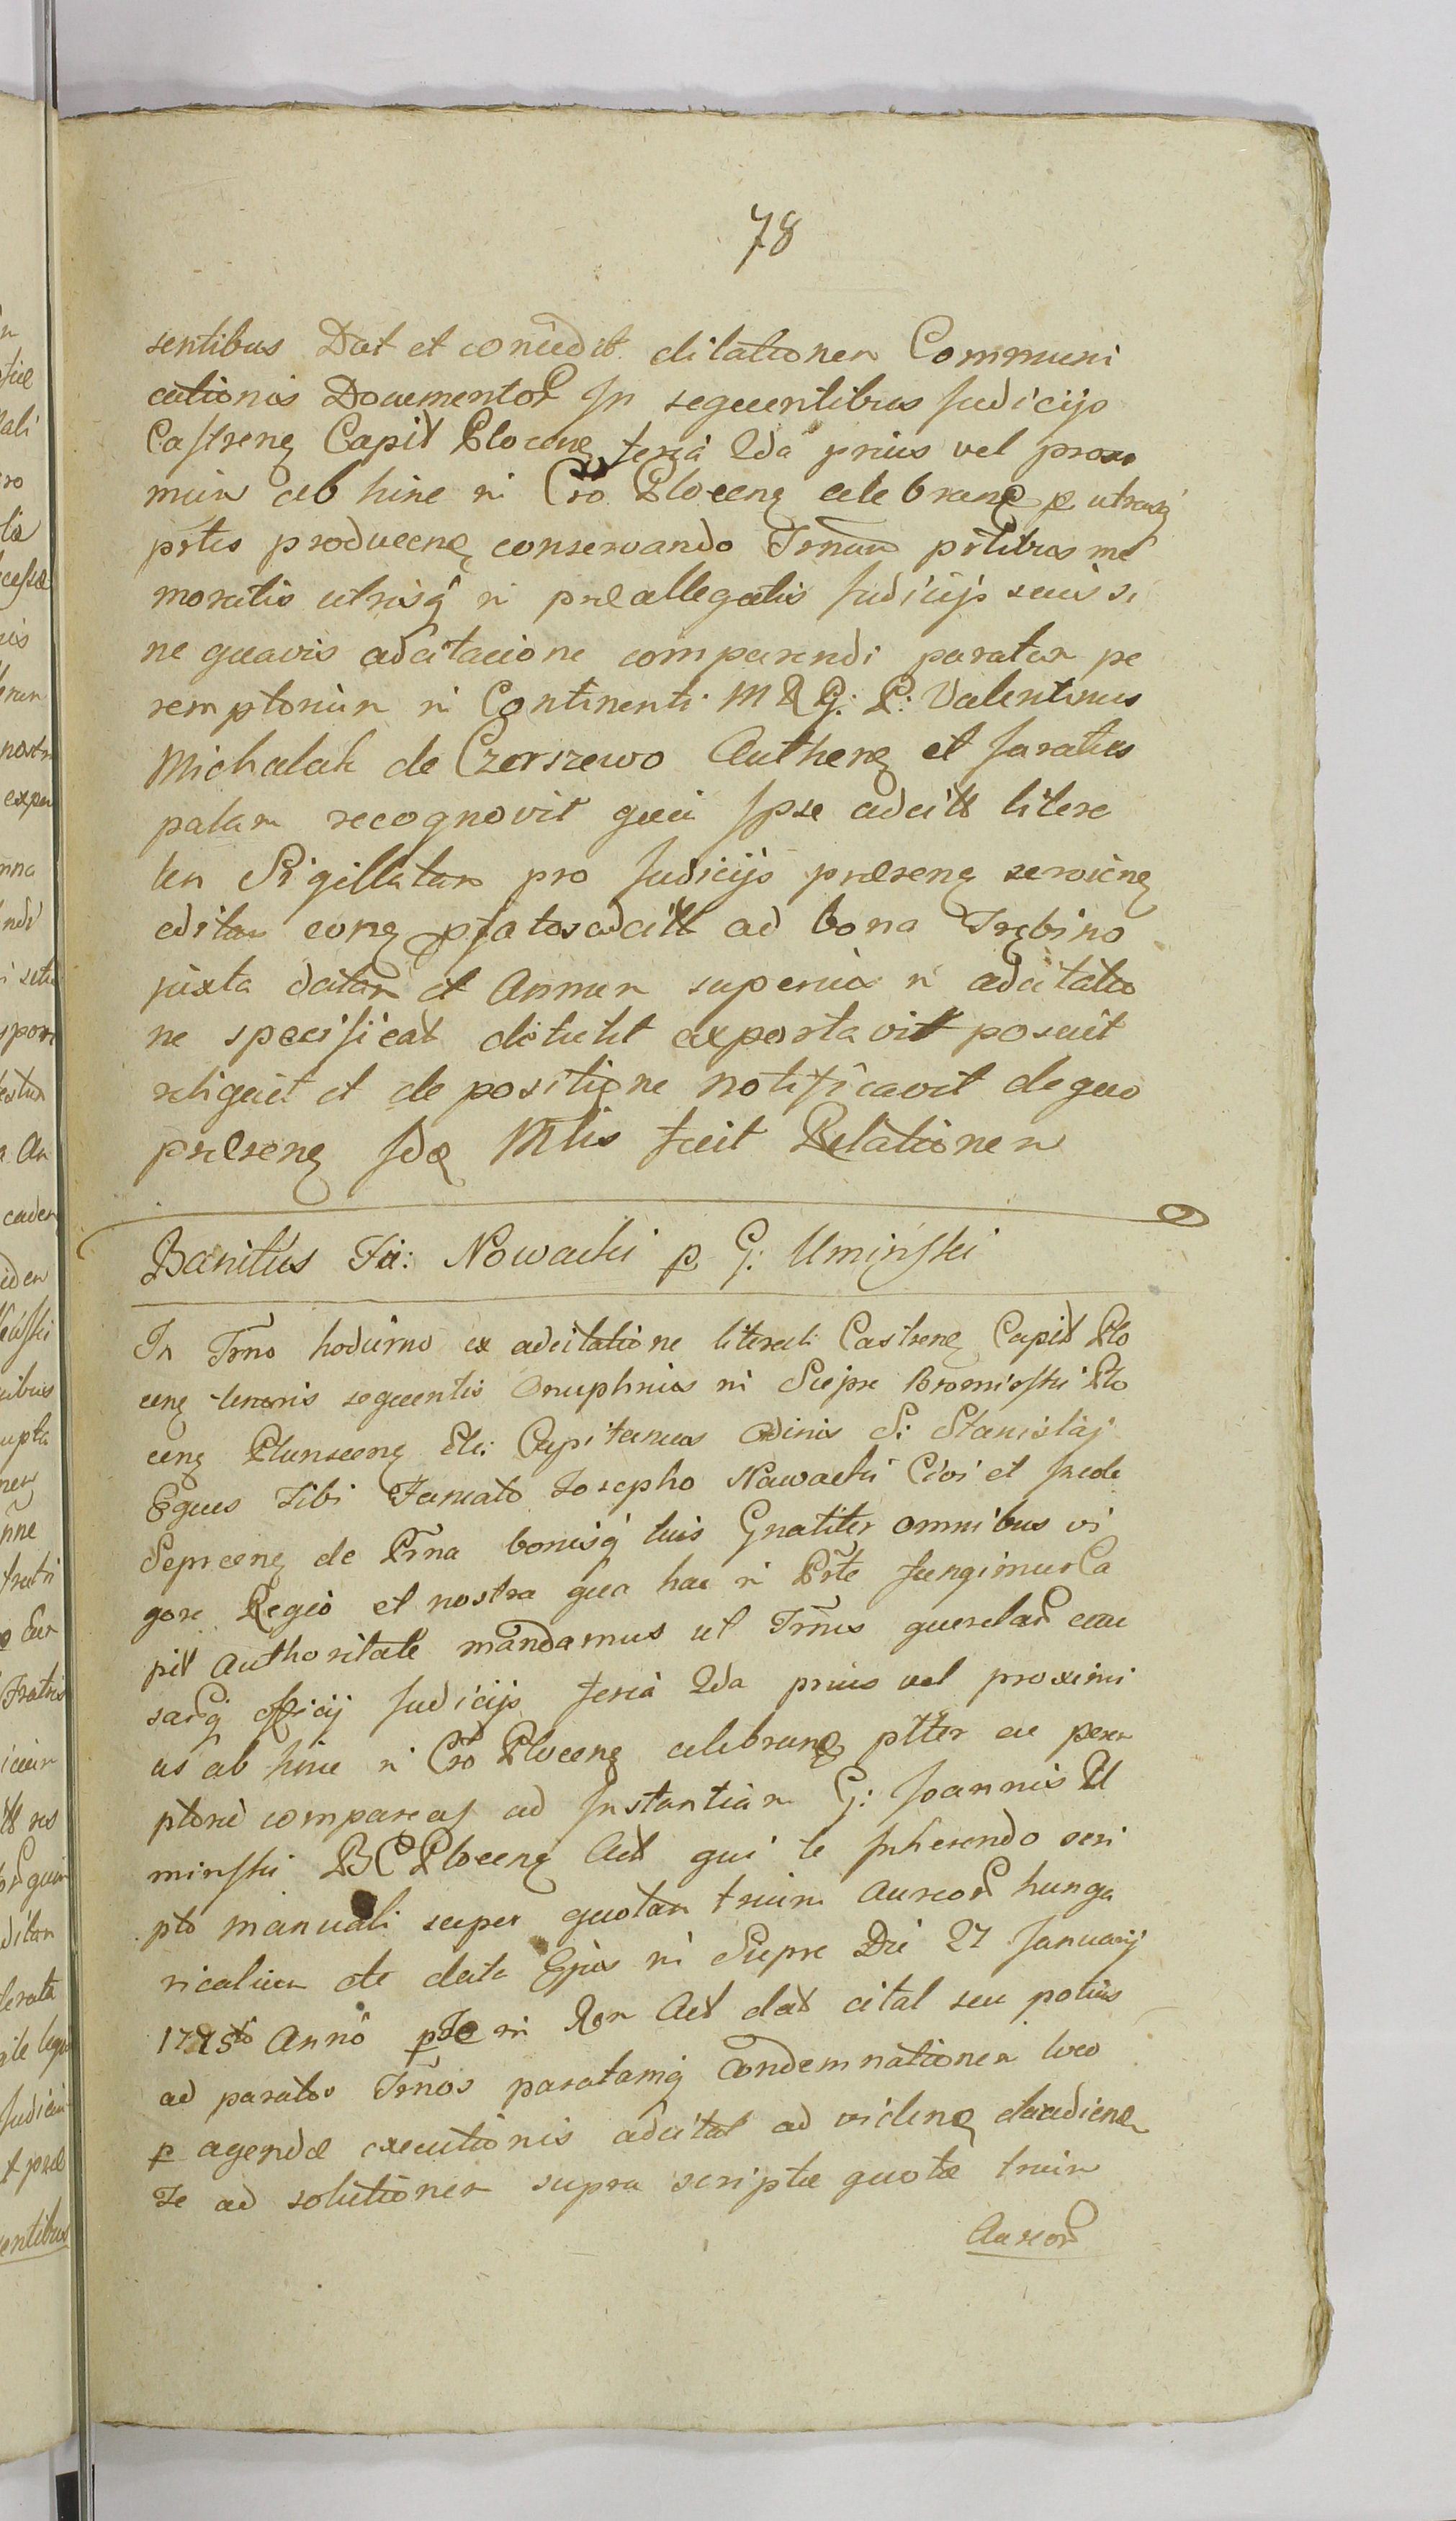 78
sentibus Dat et concedit dilationem Communi
cationis Documentor In sequentibus Judicijs
Castrens Capit Plocens feria 2da prius vel proxi
mum ab hinc in Cro Plocens celebrans p utrasq
prtes producens conservando Trnum prtibus me
moratis utrisq in praeallegatis Judicijs suis si
ne quavis adcitacione comparendi paratum pe
remptorium in Continenti M R G: P: Valentinus
Michalak de Czerszewo Authens et Juratus
palam recognovit quia Ipse adcitt litera
lem Sigillatam pro Judicijs praesens serviens
editam cong pfatos adcitt ad bona Trębino
juxta datam et Annum superius in adcitatio
ne specificat detulit exportavit posuit
reliquit et de positione notificavit de quo
praesens Ide Mlis fecit Relationem
Banitus Fa: Nowacki p G: Uminski
In Trno hodierno ex adcitatione literali Castrens Capit Plo
cens tenoris sequentis Onuphrius in Siepre Bromirski Plo
cens Plunscens Etc: Capitaneus Ordinis S: Stanislaj
Eques Tibi Famato Josepho Nawacki Civi et Incole
Seprcens de Prna bonisq tuis Gnatiter omnibus vi
gore Regio et nostra qua hac in Prte fungimur Ca
pit Authoritate mandamus ut Trnis querelar cau
sarq officij Judicijs feria 2da prius vel proximi
us ab hinc in Cro Plocens celebrans ptter ac perem
ptorie compareas ad Instantiam G: Joannis U
minski B C Plocens Act qui te Inherendo scri
pto manuali super quotam trium Aureor hunga
ricalium de data Ejus in Siepre Die 27 Januarij
1775to Anno pte in Rem Act dat citat seu potius
ad paratos Trnos paratamq Condemnationem loco
p agendae executionis adcitat ad videns et audiens
Te ad solutionem supra scriptae quotae trium
Aureor